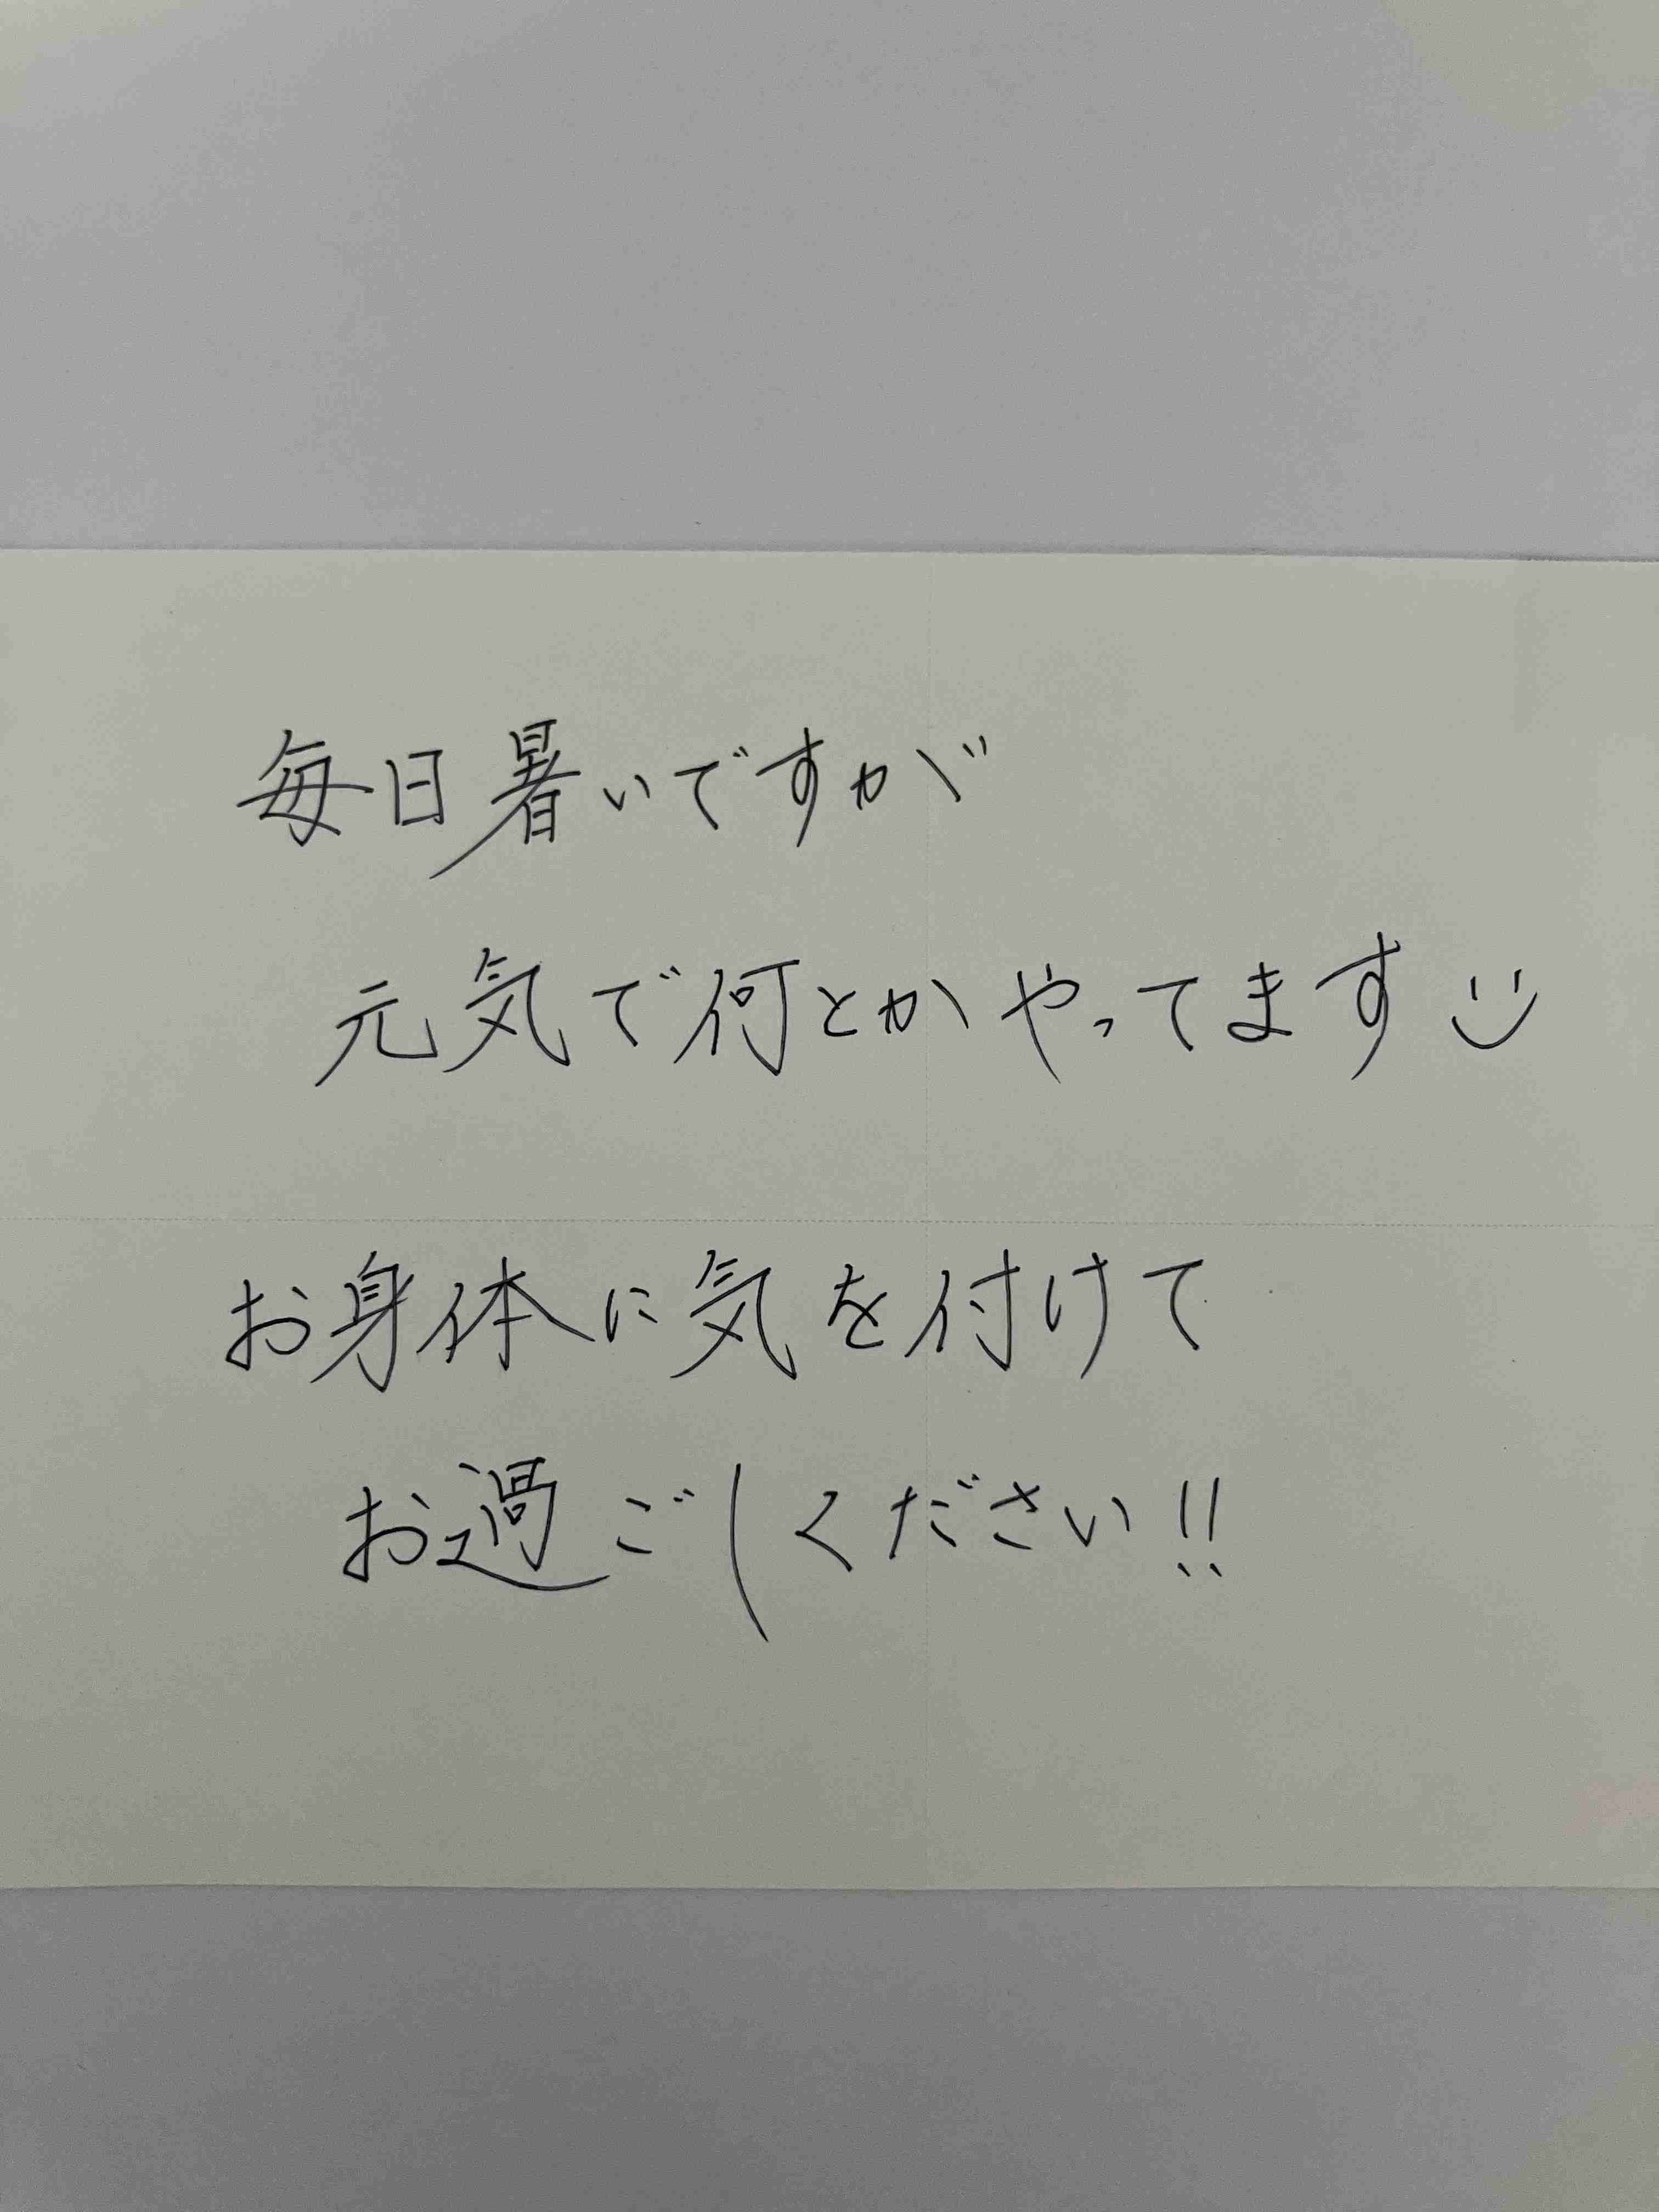 毎日暑いですが
元気で何とかやってます
お身体に気を付けて
お過ごしください!!